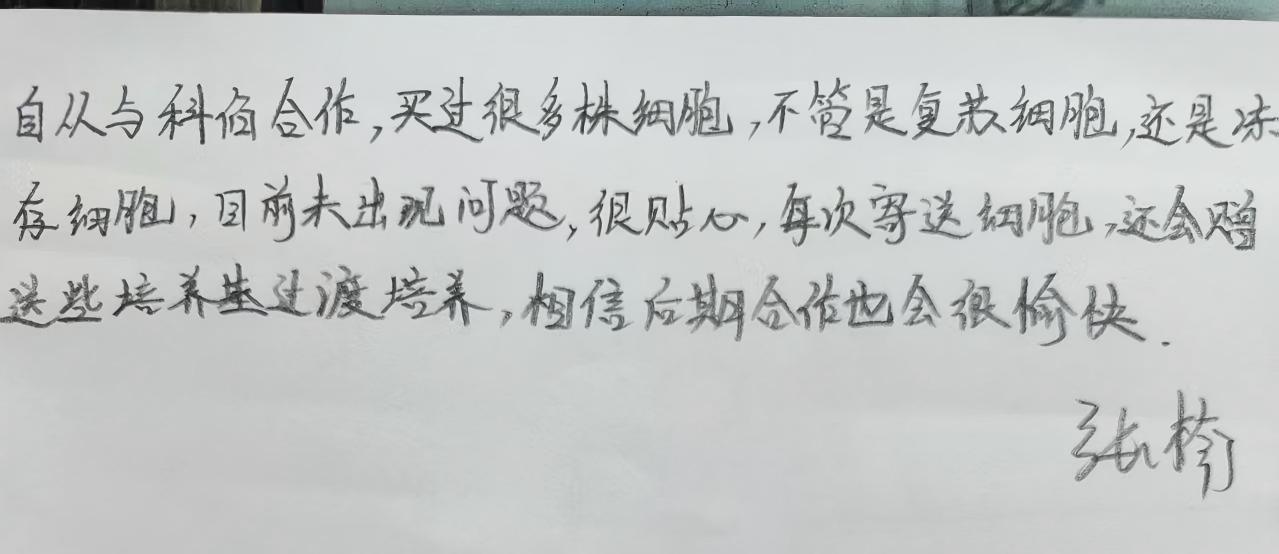 自从与科佰合作,买过很多株细胞,不管是复苏细胞,还是冻
存细胞,目前未出现问题,很贴心,每次寄送细胞,还会赠
送些培养基过渡培养,相信后期合作也会很愉快.
张